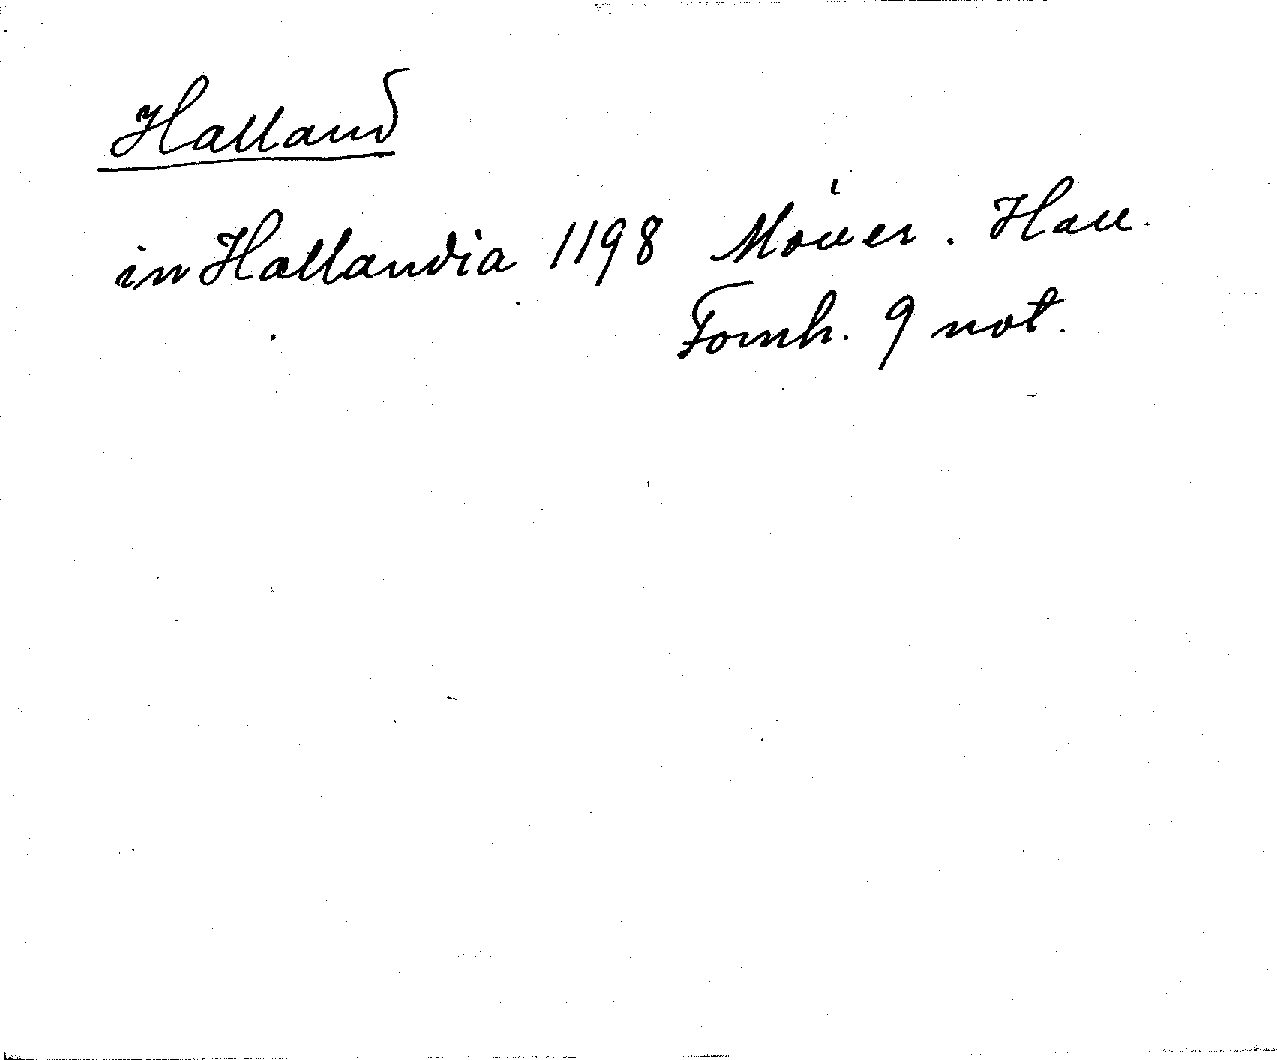 Halland
in Hallandia 1198 Möller. Hall.
Fornh. 9 not.